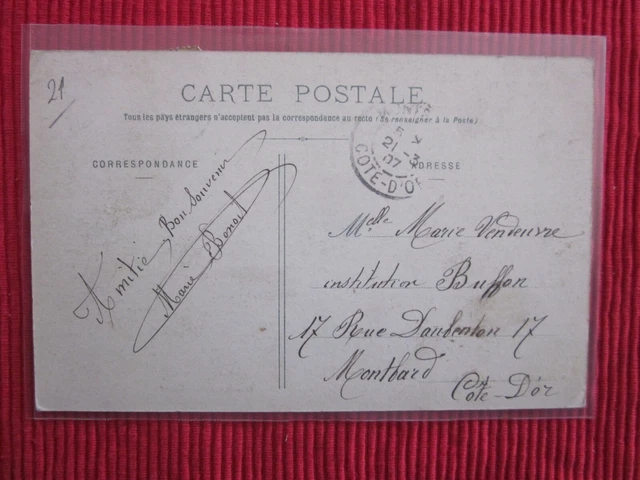 21
CARTE POSTALE
Tous les pays étrangers n'acceptent pas la correspondance au recto (Se renseigner à la Poste)
CORRESPONDANCE
Amitié Bon Souvenir
Marie Benoit
21 -3
07
COTE-D'OR
ADRESSE
Melle Marie Vendeuvre
institution Buffon
17 Rue Daubenton 17
Montbard
Côte-D'or